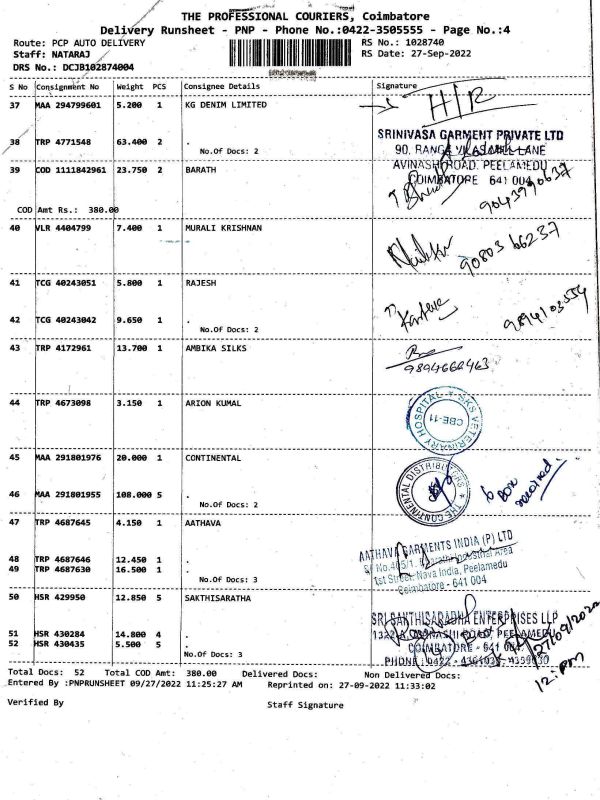 THE PROFESSIONAL COURIERS, Coimbatore
Delivery Runsheet - PNP - Phone No.:0422-3505555 - Page No.:4
Route: PCP AUTO DELIVERY RS No.: 1028740
Staff: NATARAJ RS Date: 27-Sep-2022
DRS No.: DCJB102874004
S No Consignment No Weight PCS Consignee Details Signature
37 MAA 294799601 5.200 1 KG DENIM LIMITED H/R
38 TRP 4771548 63.400 2 . SRINIVASA GARMENT PRIVATE LTD
No.Of Docs: 2 90, RANGA VILAS MILL LANE
39 COD 1111842961 23.750 2 BARATH AVINASHI ROAD, PEELAMEDU
COIMBATORE 641 004
COD Amt Rs.: 380.00 9043790637
40 VLR 4404799 7.400 1 MURALI KRISHNAN
90803 66237
41 TCG 40243051 5.800 1 RAJESH
42 TCG 40243042 9.650 1 . 9894103554
No.Of Docs: 2
43 TRP 4172961 13.700 1 AMBIKA SILKS
9894666463
44 TRP 4673098 3.150 1 ARION KUMAL SKS VETERINARY HOSPITAL CBE-11
45 MAA 291801976 20.000 1 CONTINENTAL THE CONTINENTAL DISTRIBUTORS
6 Box received.
46 MAA 291801955 108.000 5 .
No.Of Docs: 2
47 TRP 4687645 4.150 1 AATHAVA
AATHAVA GARMENTS INDIA (P) LTD
48 TRP 4687646 12.450 1 . Industrial Area
49 TRP 4687630 16.500 1 . 1st Street, Nava India, Peelamedu
No.Of Docs: 3 Coimbatore - 641 004
50 HSR 429950 12.850 5 SAKTHISARATHA
SRI SAKTHISARADHA ENTERPRISES LLP
51 HSR 430284 14.800 4 . AVINASHI ROAD, PEELAMEDU
52 HSR 430435 5.500 5 . COIMBATORE - 641 004.
No.Of Docs: 3 PHONE : 0422 -
27/09/2022
12: PM
Total Docs: 52 Total COD Amt: 380.00 Delivered Docs: Non Delivered Docs:
Entered By :PNPRUNSHEET 09/27/2022 11:25:27 AM Reprinted on: 27-09-2022 11:33:02
Verified By Staff Signature